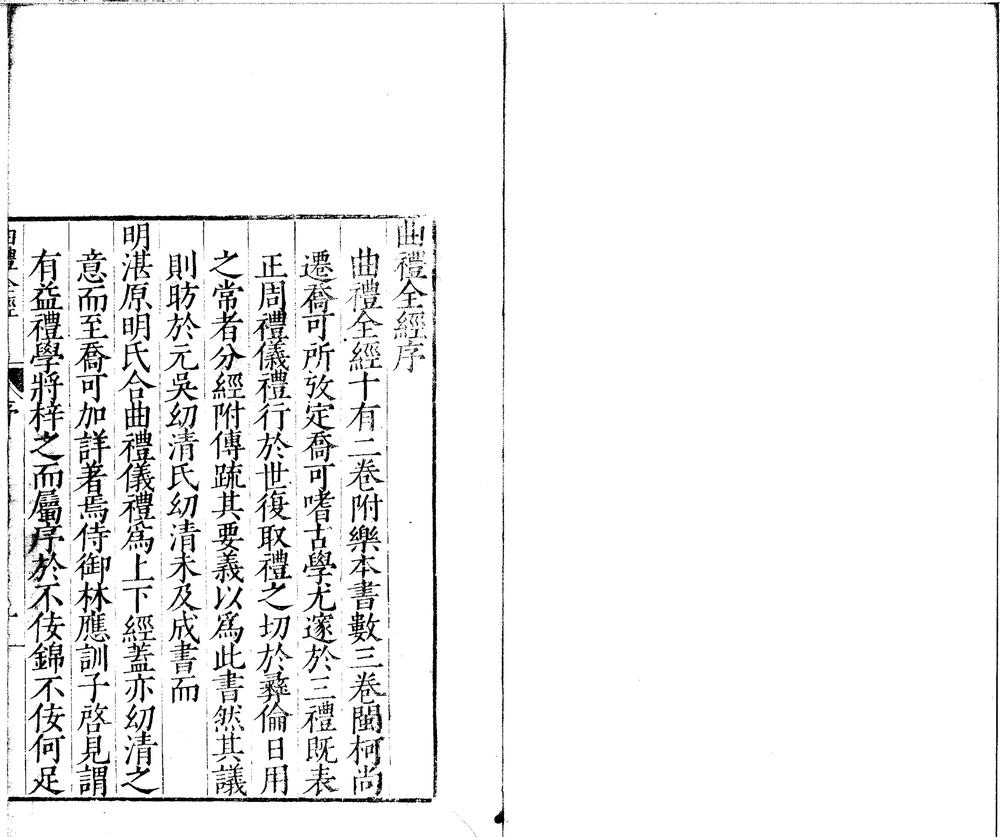 曲禮全經序
曲禮全經十有二卷附樂本書數三卷閩柯尚
遷喬可所攷定喬可嗜古學尤邃於三禮既表
正周禮儀禮行於世復取禮之切於彞倫日用
之常者分經附傳疏其要義以爲此書然其議
則昉於元吳㓜清氏㓜清未及成書而
明湛原明氏合曲禮儀禮爲上下經蓋亦㓜清之
意而至喬可加詳著焉侍御林應訓子啓見謂
有益禮學將梓之而屬序於不佞錦不佞何足
曲禮全經
序